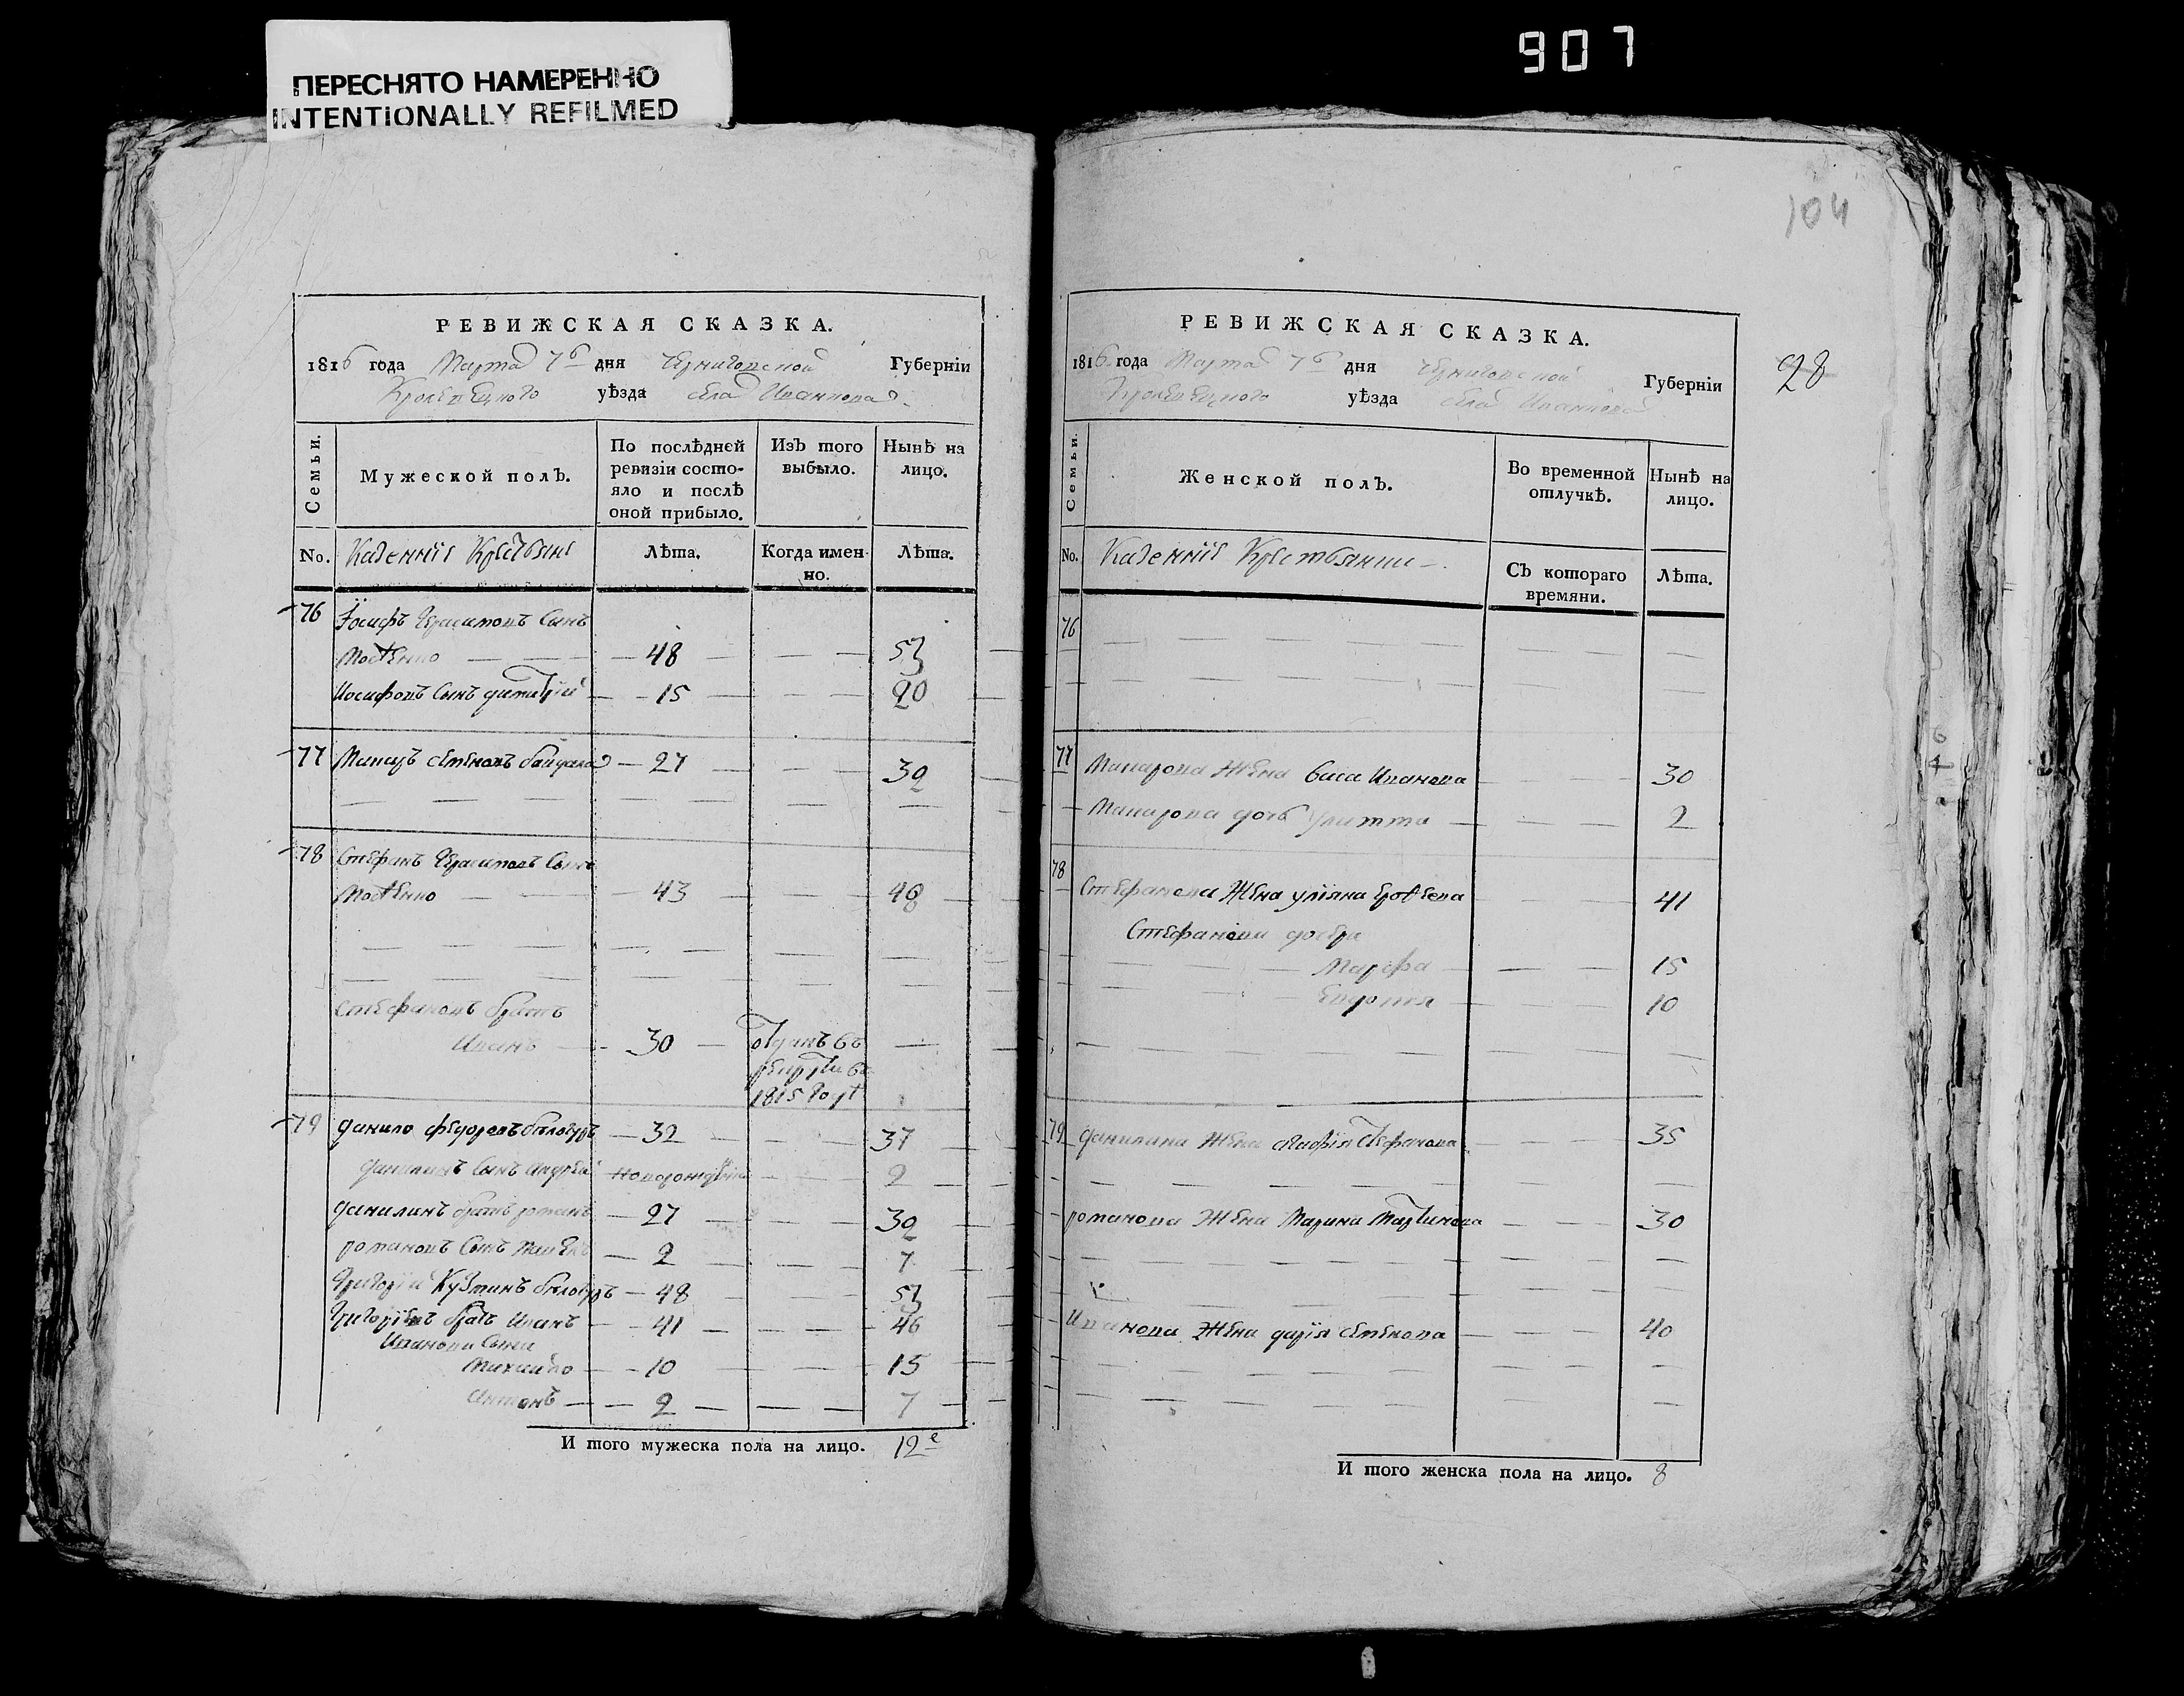 907
ПЕРЕСНЯТО НАМЕРЕННО
INTENTIONALLY REFILMED
104
РЕВИЖСКАЯ СКАЗКА.
1816 года Марта 7го дня Черниговской Губерніи
Кролевецкого уѣзда села Иванкова
Семьи.
Мужеской полъ.
По послѣдней ревизіи состо-
яло и послѣ
оной прибыло.
Изъ того
выбыло.
Нынѣ на
лицо.
No. Казенніе Крестьяне Лѣта. Когда имен-
но. Лѣта.
76 Іосифъ Герасимовъ Сынъ
48 53
Иосифовъ Сынъ Димитрій 15 20
77 Макаръ Семеновъ 27 32
78 Стефанъ Герасимовъ Сынъ
43 48
Стефановъ братъ
Иванъ 30 отданъ въ
рекруты въ
1815 годѣ
79 Данило Федоровъ Білогубъ 32 37
Данилинъ Сынъ Андрей новорожденній 2
Данилинъ братъ романъ 27 32
романовъ Сынъ 2 7
Григорій Кузминъ Білогубъ 48 53
Григоріевъ братъ Иванъ 41 46
Ивановы Сыны
Михайло 10 15
Антонъ 2 7
И того мужеска пола на лицо. 12е
РЕВИЖСКАЯ СКАЗКА.
1816 года Марта 7го дня Черниговской Губерніи
Кролевецкого уѣзда села Иванкова
28
Семьи.
Женской полъ.
Во временной
отлучкѣ.
Нынѣ на
лицо.
No. Казенніе Крестьянки Съ котораго
времяни. Лѣта.
76
77 Макарова Жена Васа Иванова 30
Макарова дочь Улитта 2
78
Стефанова Жена уліяна 41
Стефанови дочери
Марфа 15
Евдокія 10
79 Данилина Жена Агафія Стефанова 35
романова Жена Марина Мартинова 30
Иванова Жена дарія Семенова 40
И того женска пола на лицо. 8